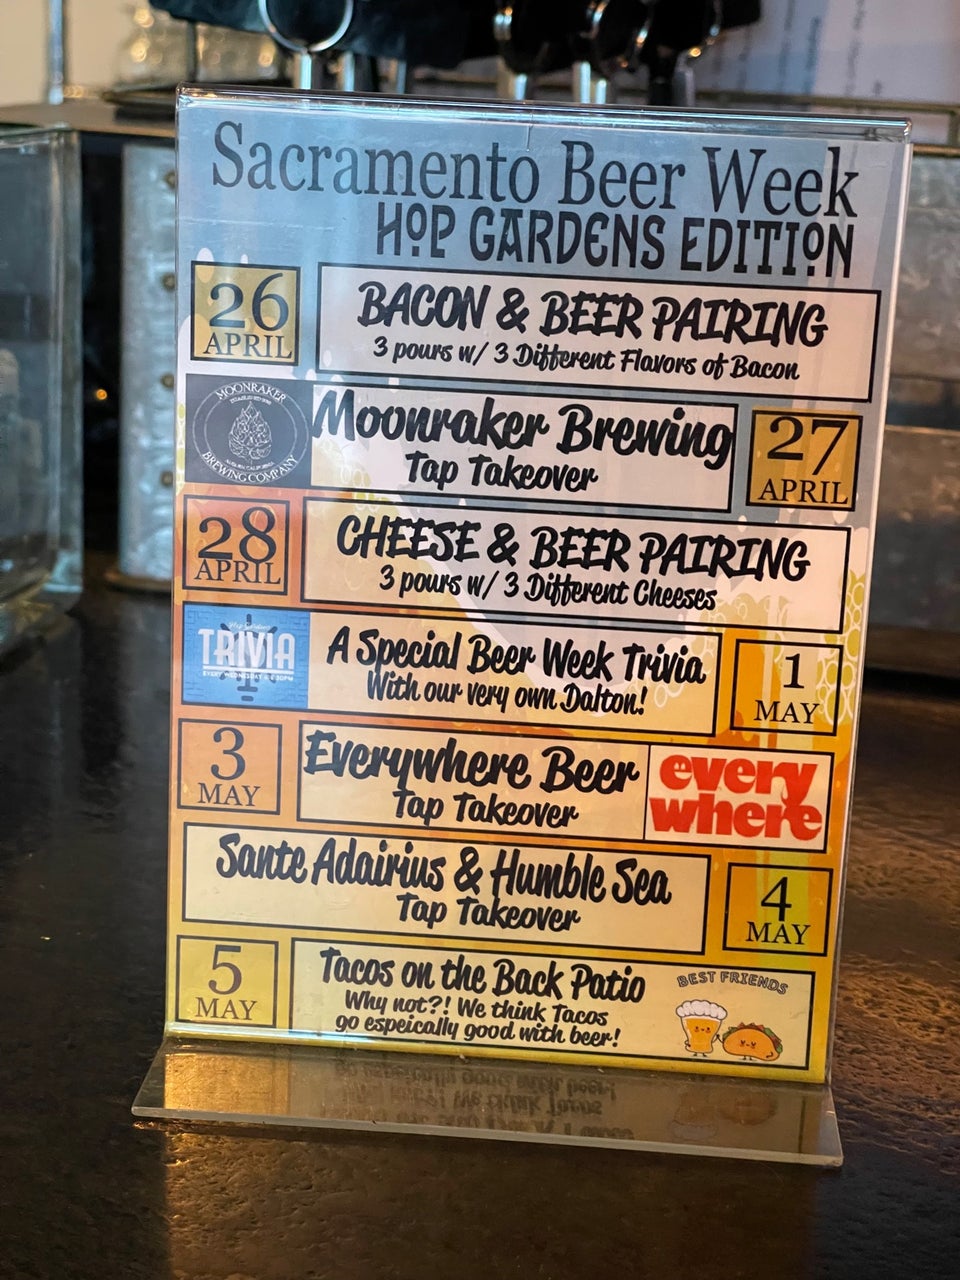 Sacramento Beer Week
HOP GARDENS EDITION
26
APRIL
BACON & BEER PAIRING
3 pours w/ 3 Different Flavors of Bacon
MOONRAKER
BREWING COMPANY
Moonraker Brewing
Tap Takeover
27
APRIL
28
APRIL
CHEESE & BEER PAIRING
3 pours w/ 3 Different Cheeses
Hop Gardens
TRIVIA
EVERY WEDNESDAY @ 6:30PM
A Special Beer Week Trivia
With our very own Dalton!
1
MAY
3
MAY
Everywhere Beer
Tap Takeover
every
where
Sante Adairius & Humble Sea
Tap Takeover
4
MAY
5
MAY
Tacos on the Back Patio
Why not?! We think Tacos
go espeically good with beer!
BEST FRIENDS